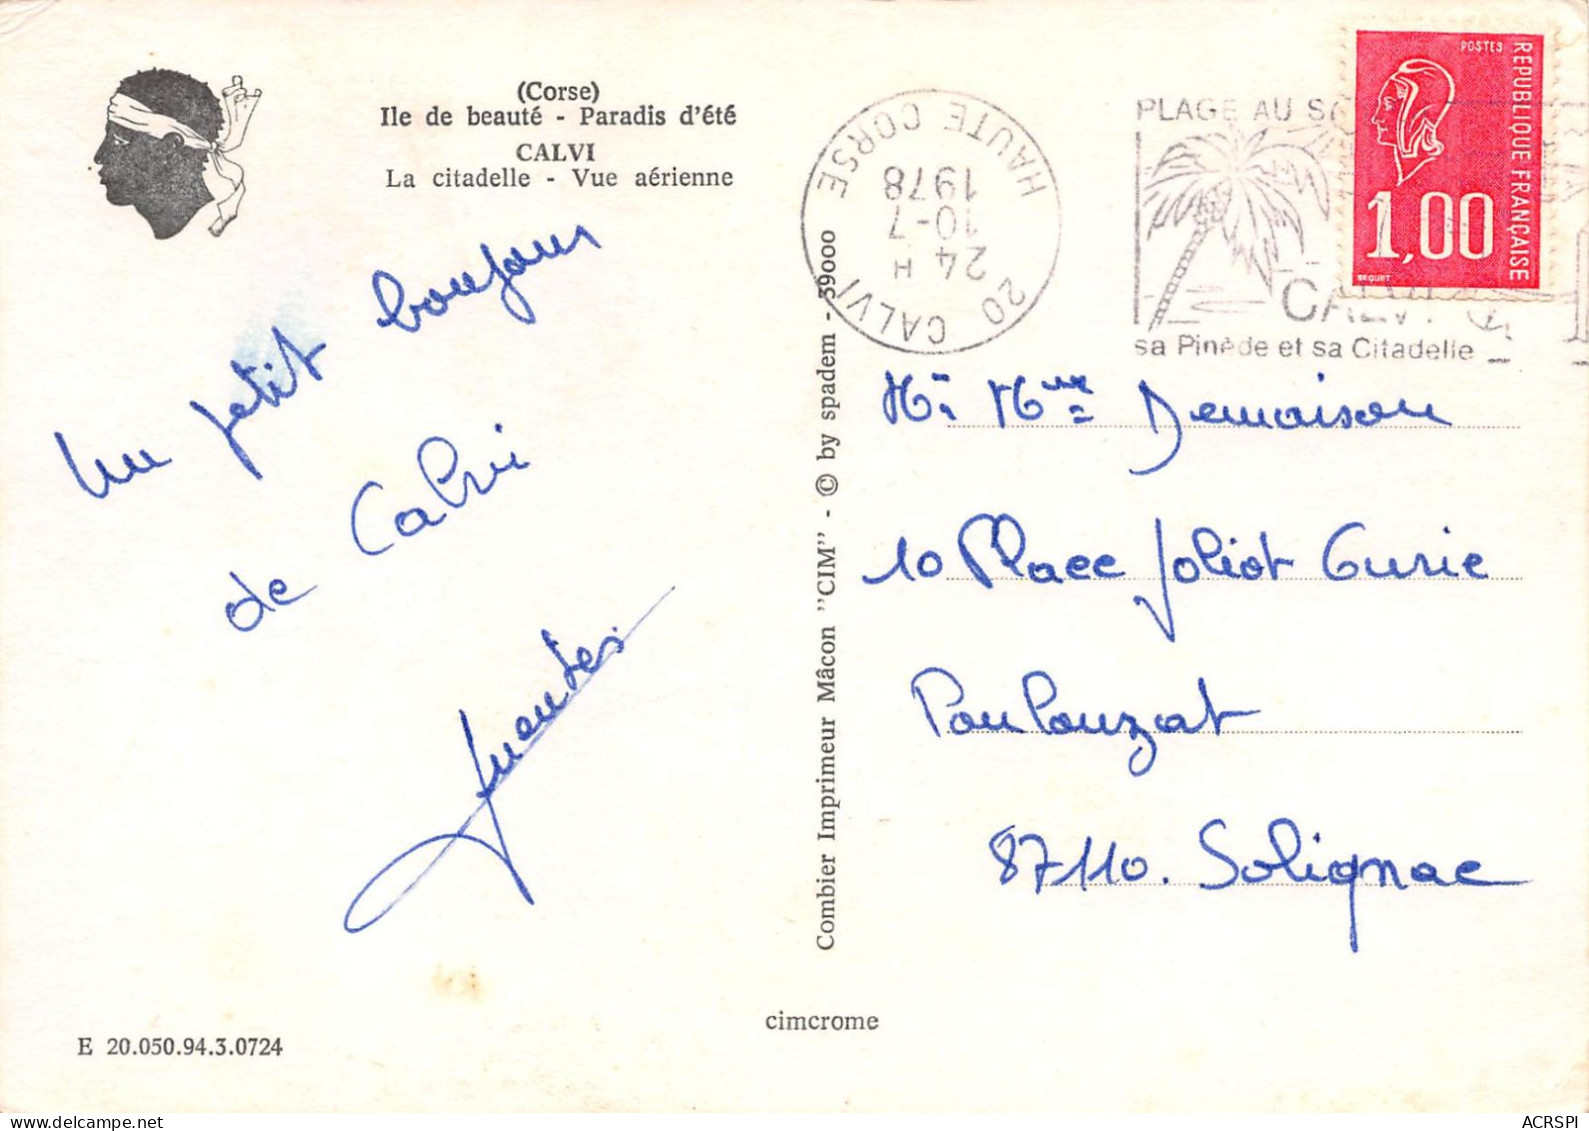 (Corse)
Ile de beauté - Paradis d'été
CALVI
La citadelle - Vue aérienne
Un petit boujour
de Calvi
E 20.050.94.3.0724
Combier Imprimeur Mâcon "CIM" - © by spadem - 39000
cimcrome
20 CALVI
HAUTE CORSE
24 H
10-7
1978
PLAGE AU
CALVI
sa Pinède et sa Citadelle
POSTES
REPUBLIQUE FRANÇAISE
1,00
BEQUET
Mr. Mme Demaison
10 Place Joliot Curie
Poulouzat
87110. Solignac
ACRSPI